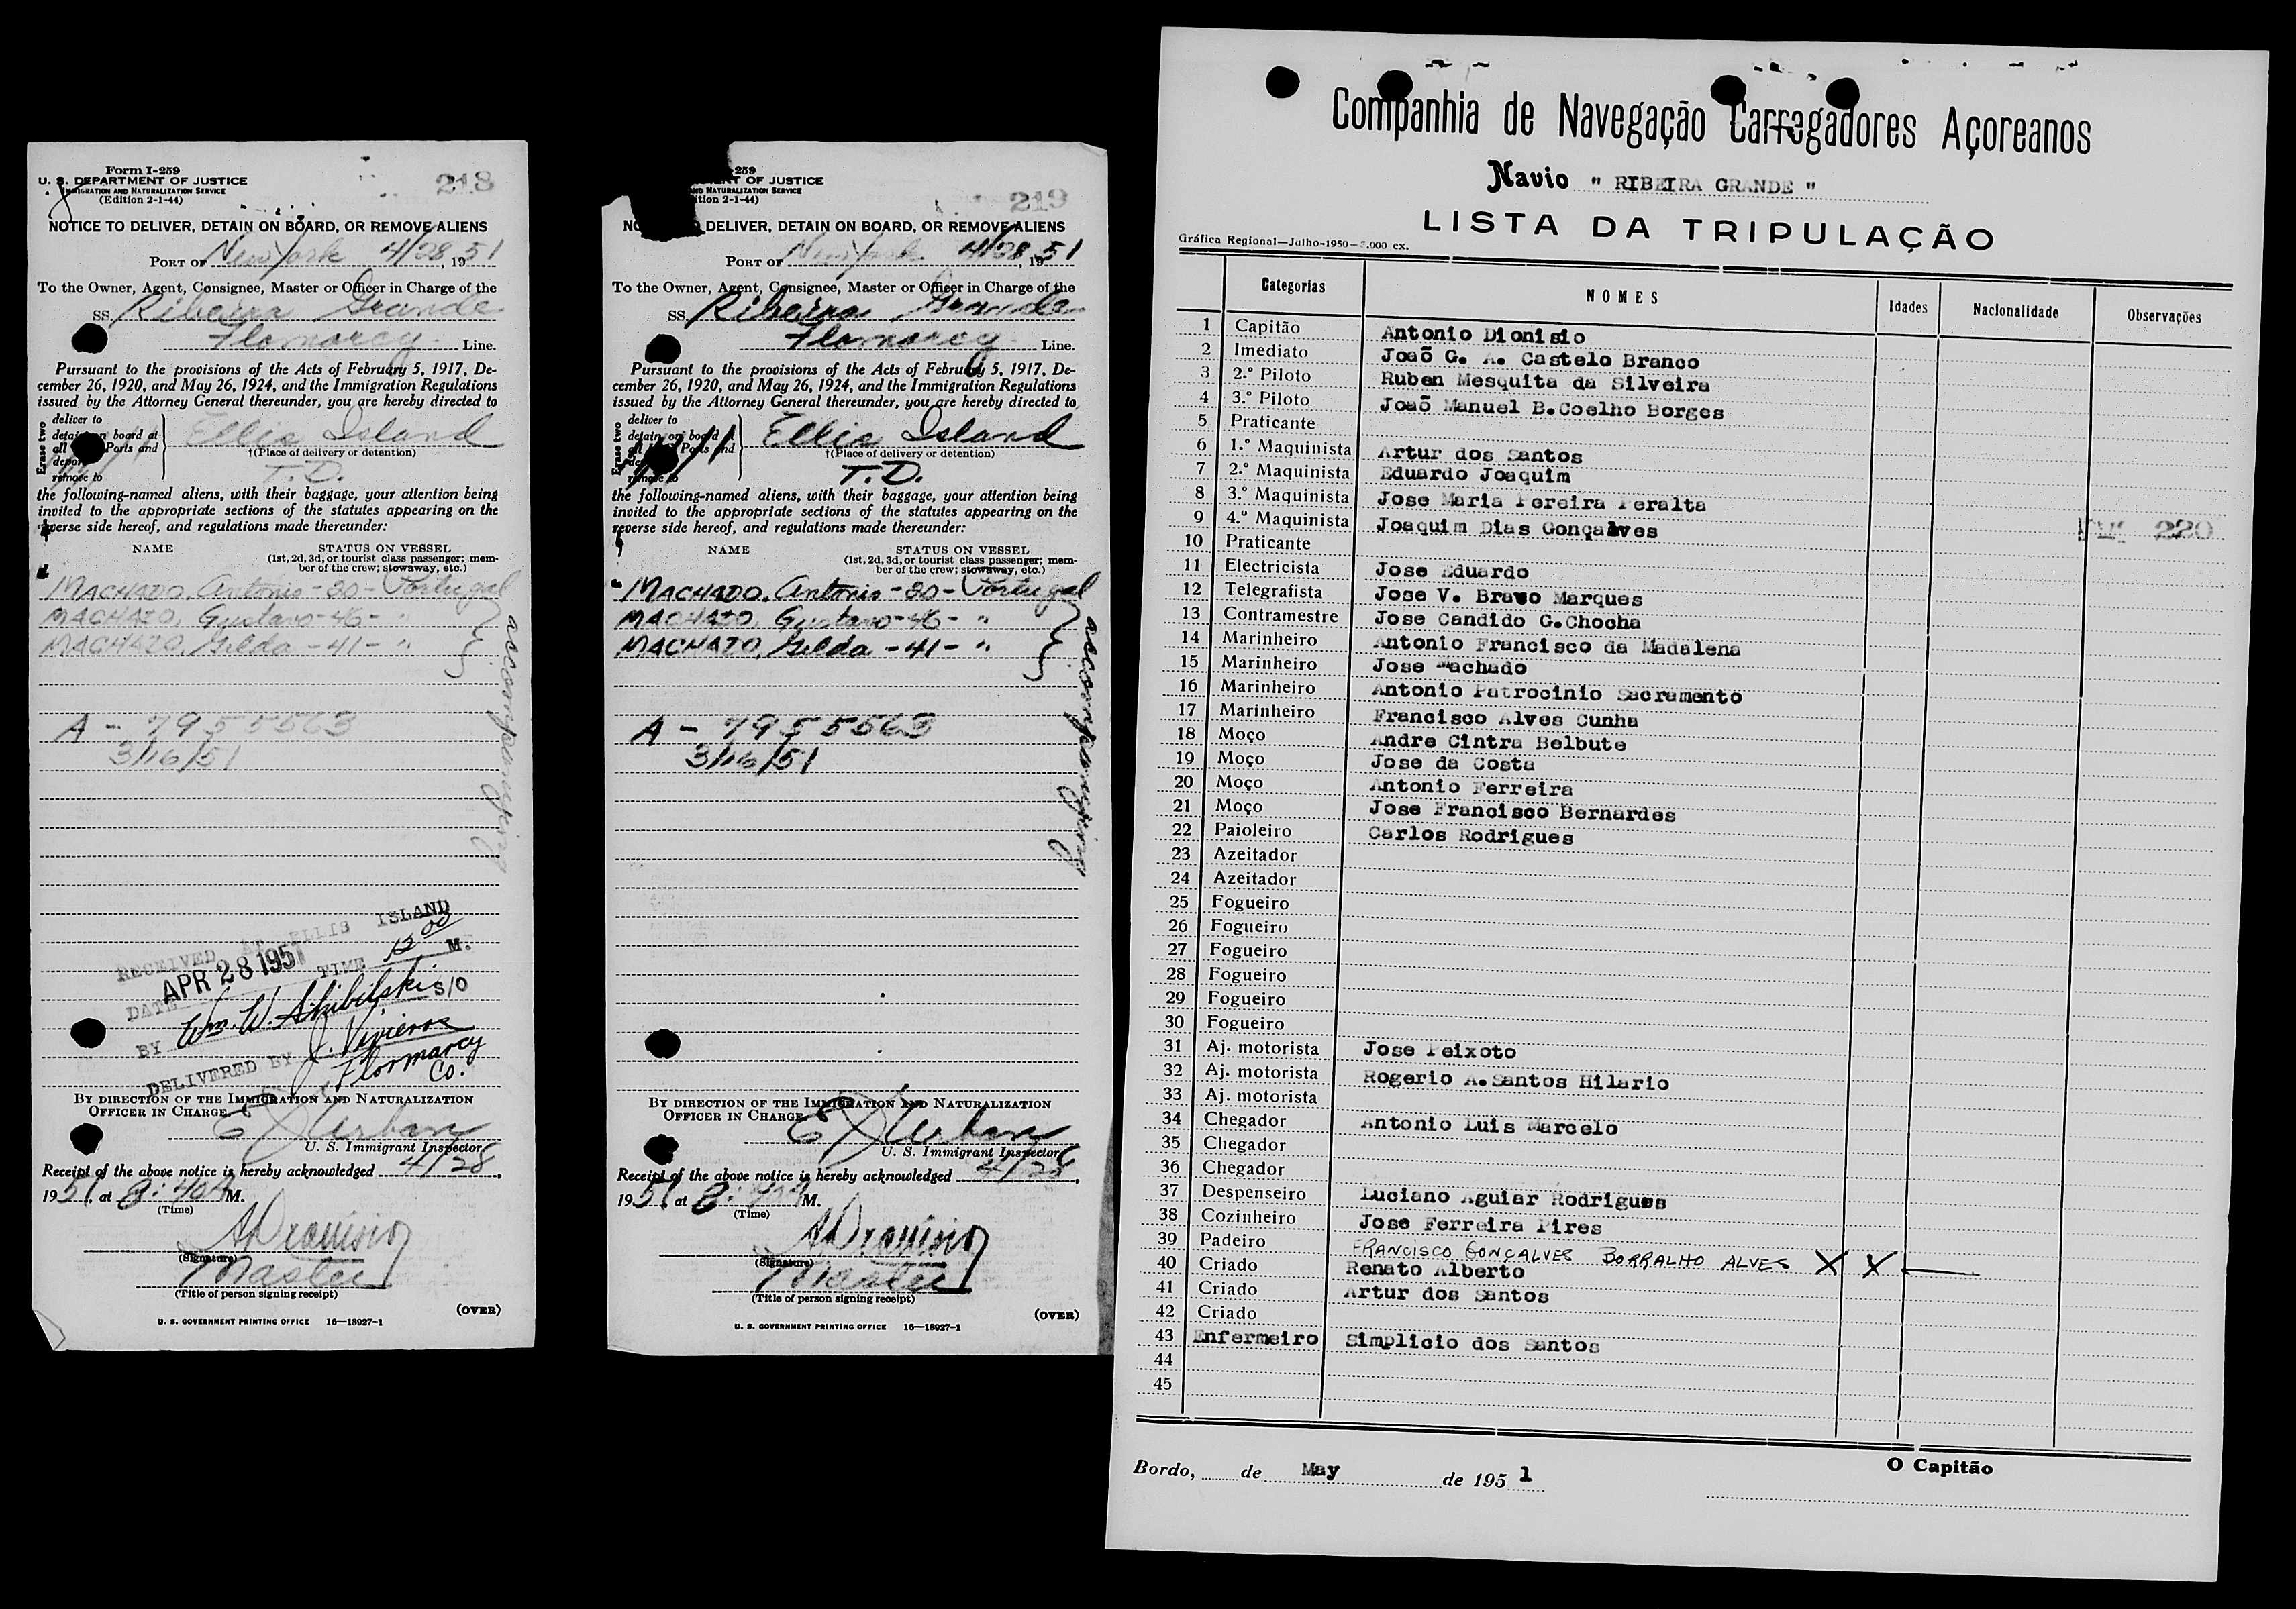 Form I-259
U. S. DEPARTMENT OF JUSTICE
IMMIGRATION AND NATURALIZATION SERVICE
(Edition 2-1-44)
218
NOTICE TO DELIVER, DETAIN ON BOARD, OR REMOVE ALIENS
PORT OF New York 4/28, 1951
To the Owner, Agent, Consignee, Master or Officer in Charge of the
SS. Ribeira Grande
Flomarcy Line.
Pursuant to the provisions of the Acts of February 5, 1917, De-
cember 26, 1920, and May 26, 1924, and the Immigration Regulations
issued by the Attorney General thereunder, you are hereby directed to
Erase two
deliver to
detain on board at
all Ports and
deport
remove to
Ellis Island
†(Place of delivery or detention)
T.D.
the following-named aliens, with their baggage, your attention being
invited to the appropriate sections of the statutes appearing on the
reverse side hereof, and regulations made thereunder:
NAME STATUS ON VESSEL
(1st, 2d, 3d, or tourist class passenger; mem-
ber of the crew; stowaway, etc.)
MACHADO, Antonio - 20 - Portugal
MACHADO, Gustavo - 46 - "
MACHADO, Gilda - 41 - "
accompanying
A - 7955563
3/16/51
RECEIVED AT ELLIS ISLAND
DATE APR 28 1951 TIME 12 00 M.
BY Wm. W. Skibilski S/O
DELIVERED BY J. Vivieros
Flormarcy
Co.
BY DIRECTION OF THE IMMIGRATION AND NATURALIZATION
OFFICER IN CHARGE
E J Urban
U. S. Immigrant Inspector
Receipt of the above notice is hereby acknowledged 4/28,
1951, at 8:40 A M.
(Time)
A Dionisio
(Signature)
Master
(Title of person signing receipt)
(OVER)
U. S. GOVERNMENT PRINTING OFFICE 16—18927-1
259
NT OF JUSTICE
ND NATURALIZATION SERVICE
ition 2-1-44)
219
NO DELIVER, DETAIN ON BOARD, OR REMOVE ALIENS
PORT OF New York 4/28, 1951
To the Owner, Agent, Consignee, Master or Officer in Charge of the
SS. Ribeira Grande
Flomarcy Line.
Pursuant to the provisions of the Acts of February 5, 1917, De-
cember 26, 1920, and May 26, 1924, and the Immigration Regulations
issued by the Attorney General thereunder, you are hereby directed to
Erase two
deliver to
detain on board at
all Ports and
de
remove to
Ellis Island
†(Place of delivery or detention)
T.D.
the following-named aliens, with their baggage, your attention being
invited to the appropriate sections of the statutes appearing on the
reverse side hereof, and regulations made thereunder:
NAME STATUS ON VESSEL
(1st, 2d, 3d, or tourist class passenger; mem-
ber of the crew; stowaway, etc.)
MACHADO, Antonio - 20 - Portugal
MACHADO, Gustavo - 46 - "
MACHADO, Gilda - 41 - "
accompanying
A - 7955563
3/16/51
BY DIRECTION OF THE IMMIGRATION AND NATURALIZATION
OFFICER IN CHARGE
E J Urban
U. S. Immigrant Inspector
Receipt of the above notice is hereby acknowledged 4/28,
1951, at 8:40 A M.
(Time)
A Dionisio
(Signature)
Master
(Title of person signing receipt)
(OVER)
U. S. GOVERNMENT PRINTING OFFICE 16—18927-1
Companhia de Navegação Carregadores Açoreanos
Navio " RIBEIRA GRANDE "
LISTA DA TRIPULAÇÃO
Gráfica Regional—Julho-1950—5.000 ex.
Categorias NOMES Idades Nacionalidade Observações
1 Capitão Antonio Dionisio
2 Imediato Joaõ G. A. Castelo Branco
3 2.º Piloto Ruben Mesquita da Silveira
4 3.º Piloto Joaõ Manuel B.Coelho Borges
5 Praticante
6 1.º Maquinista Artur dos Santos
7 2.º Maquinista Eduardo Joaquim
8 3.º Maquinista Jose Maria Pereira Peralta
9 4.º Maquinista Joaquim Dias Gonçalves
220
10 Praticante
11 Electricista Jose Eduardo
12 Telegrafista Jose V. Bravo Marques
13 Contramestre Jose Candido G.Chocha
14 Marinheiro Antonio Francisco da Madalena
15 Marinheiro Jose Machado
16 Marinheiro Antonio Patrocinio Sacramento
17 Marinheiro Francisco Alves Cunha
18 Moço Andre Cintra Belbute
19 Moço Jose da Costa
20 Moço Antonio Ferreira
21 Moço Jose Francisco Bernardes
22 Paioleiro Carlos Rodrigues
23 Azeitador
24 Azeitador
25 Fogueiro
26 Fogueiro
27 Fogueiro
28 Fogueiro
29 Fogueiro
30 Fogueiro
31 Aj. motorista Jose Peixoto
32 Aj. motorista Rogerio A.Santos Hilario
33 Aj. motorista
34 Chegador Antonio Luis Marcelo
35 Chegador
36 Chegador
37 Despenseiro Luciano Aguiar Rodrigues
38 Cozinheiro Jose Ferreira Pires
39 Padeiro FRANCISCO GONÇALVES BORRALHO ALVES X X
40 Criado Renato Alberto
41 Criado Artur dos Santos
42 Criado
43 Enfermeiro Simplicio dos Santos
44
45
Bordo, de May de 1951
O Capitão